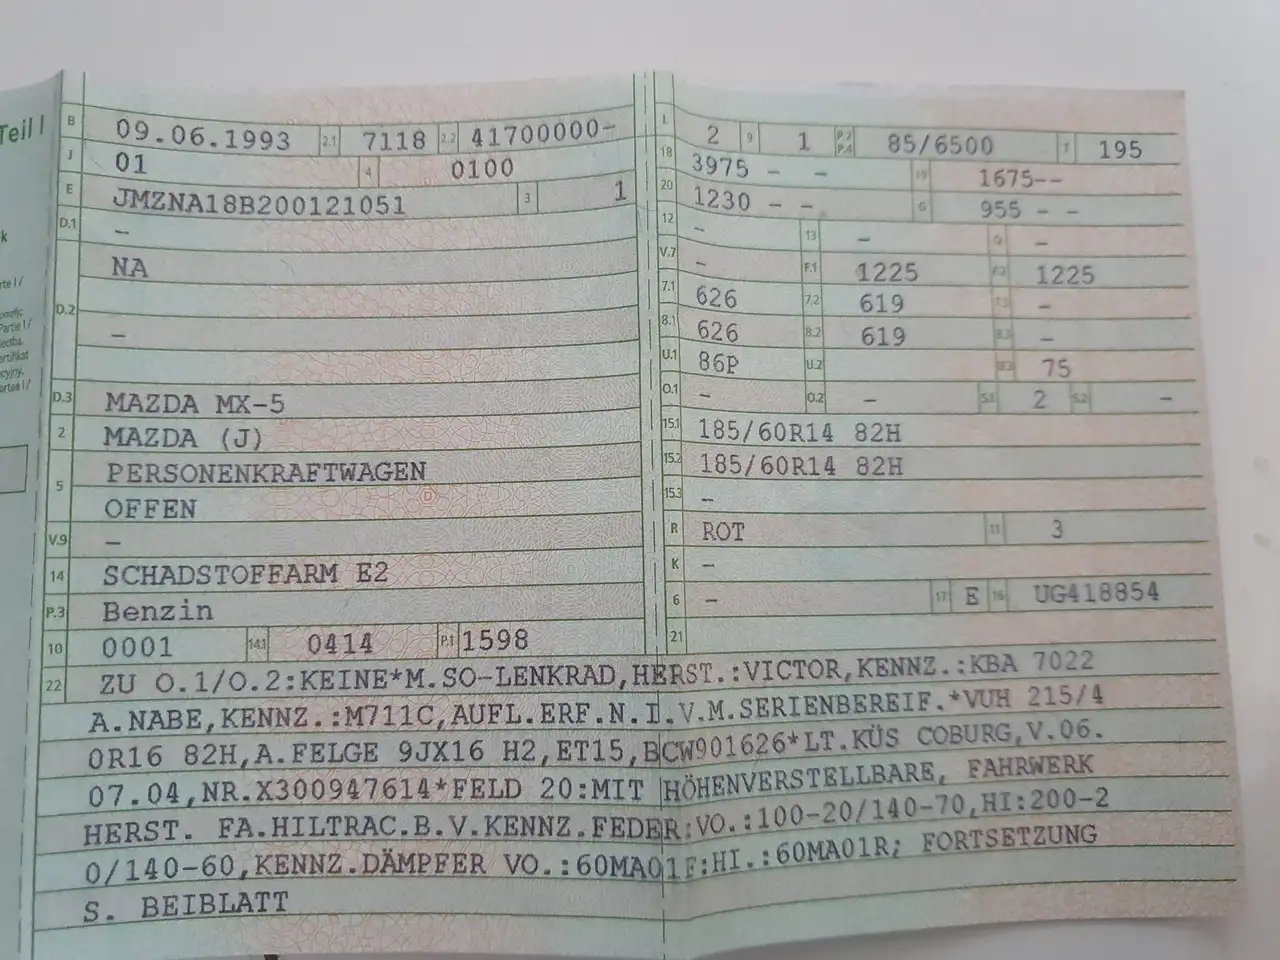 Teil I
B 09.06.1993 2.1 7118 2.2 41700000-
J 01 4 0100
E JMZNA18B200121051 3 1
D.1 -
NA
D.2
-
D.3 MAZDA MX-5
2 MAZDA (J)
5 PERSONENKRAFTWAGEN
OFFEN
V.9 -
14 SCHADSTOFFARM E2
P.3 Benzin
10 0001 14.1 0414 P.1 1598
L 2 9 1 P.2 P.4 85/6500 T 195
18 3975 - - 19 1675--
20 1230 - - G 955 - -
12 - 13 - Q -
V.7 - F.1 1225 F.2 1225
7.1 626 7.2 619 7.3 -
8.1 626 8.2 619 8.3 -
U.1 86P U.2 U.3 75
O.1 - O.2 - S.1 2 S.2 -
15.1 185/60R14 82H
15.2 185/60R14 82H
15.3 -
R ROT 11 3
K -
6 - 17 E 16 UG418854
21
22 ZU O.1/O.2:KEINE*M.SO-LENKRAD,HERST.:VICTOR,KENNZ.:KBA 7022
A.NABE,KENNZ.:M711C,AUFL.ERF.N.I.V.M.SERIENBEREIF.*VUH 215/4
0R16 82H,A.FELGE 9JX16 H2,ET15,BCW901626*LT.KÜS COBURG,V.06.
07.04,NR.X300947614*FELD 20:MIT HÖHENVERSTELLBARE, FAHRWERK
HERST. FA.HILTRAC.B.V.KENNZ.FEDER:VO.:100-20/140-70,HI:200-2
0/140-60,KENNZ.DÄMPFER VO.:60MA01F:HI.:60MA01R; FORTSETZUNG
S. BEIBLATT